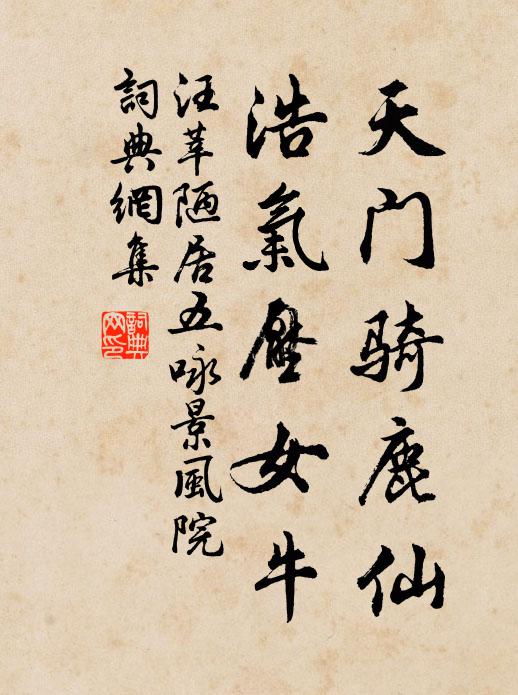 天门骑鹿仙
浩氣壓女牛
汪莘陋居五咏景風院
詞典網集
詞典网印